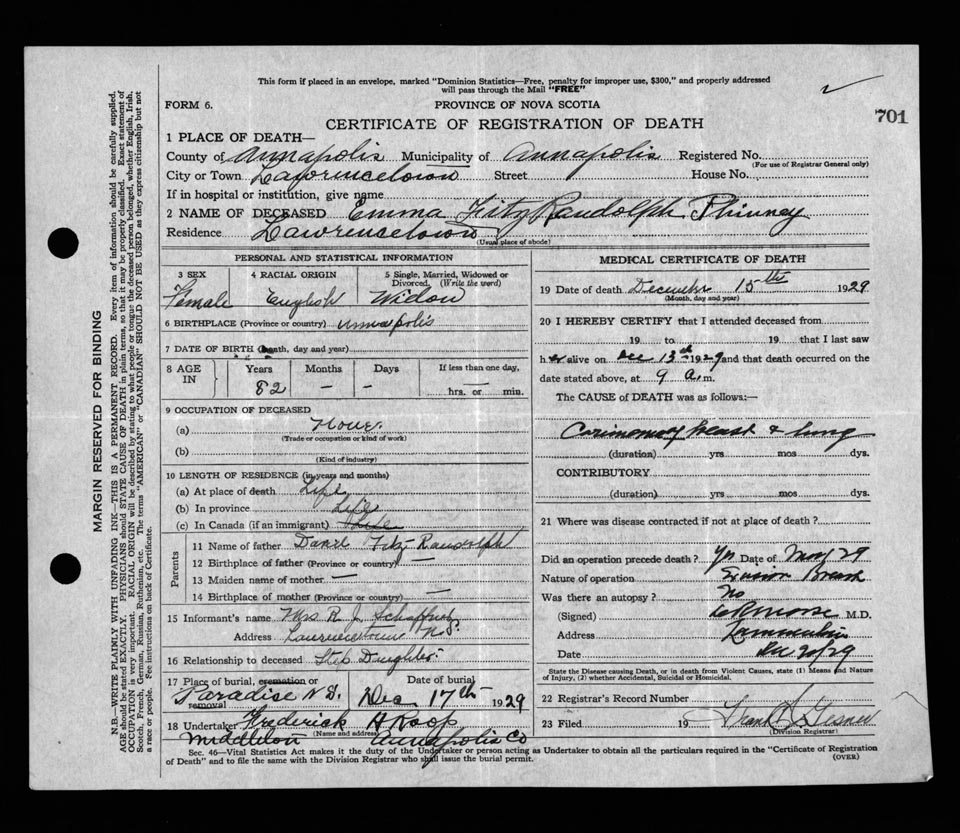 This form if placed in an envelope, marked "Dominion Statistics—Free, penalty for improper use, $300," and properly addressed
will pass through the Mail "FREE"
FORM 6.
PROVINCE OF NOVA SCOTIA
701
CERTIFICATE OF REGISTRATION OF DEATH
1 PLACE OF DEATH—
County of Annapolis Municipality of Annapolis Registered No.
(For use of Registrar General only)
City or Town Lawrencetown Street House No.
If in hospital or institution, give name
2 NAME OF DECEASED Emma Fitz Randolph Phinney
Residence Lawrencetown
(Usual place of abode)
PERSONAL AND STATISTICAL INFORMATION
3 SEX 4 RACIAL ORIGIN 5 Single, Married, Widowed or
Divorced. (Write the word)
Female English Widow
6 BIRTHPLACE (Province or country) Annapolis
7 DATE OF BIRTH (Month, day and year)
8 AGE IN Years Months Days If less than one day,
82 — — hrs. or min.
9 OCCUPATION OF DECEASED
(a) House
(Trade or occupation or kind of work)
(b)
(Kind of industry)
10 LENGTH OF RESIDENCE (in years and months)
(a) At place of death Life
(b) In province Life
(c) In Canada (if an immigrant) Life
Parents
11 Name of father Fitz Randolph
12 Birthplace of father (Province or country) —
13 Maiden name of mother —
14 Birthplace of mother (Province or country) —
15 Informant's name Mrs R. J. Schaffner
Address Lawrencetown N.S.
16 Relationship to deceased Step Daughter
17 Place of burial, cremation or removal Date of burial
Paradise N.S. Dec 17th 1929
18 Undertaker Frederick H Roop
(Name and address)
Middleton Annapolis Co
MEDICAL CERTIFICATE OF DEATH
19 Date of death December 15th 1929
(Month, day and year)
20 I HEREBY CERTIFY that I attended deceased from
19 to 19 that I last saw
her alive on Dec 13th 1929 and that death occurred on
date stated above, at 9 a.m.
The CAUSE of DEATH was as follows:—
breast & lung
(duration) yrs mos dys.
CONTRIBUTORY
(duration) yrs mos dys.
21 Where was disease contracted if not at place of death?
Did an operation precede death? Yes Date of Nov 29
Nature of operation Excision Breast
Was there an autopsy? No
(Signed) Morse M.D.
Address Lawrencetown
Date Dec 20/29
State the Disease causing Death, or in death from Violent Causes, state (1) Means and Nature
of Injury, (2) whether Accidental, Suicidal or Homicidal.
22 Registrar's Record Number
23 Filed 19 Frank Gesner
(Division Registrar)
Sec. 46—Vital Statistics Act makes it the duty of the Undertaker or person acting as Undertaker to obtain all the particulars required in the "Certificate of Registration
of Death" and to file the same with the Division Registrar who shall issue the burial permit.
(OVER)
MARGIN RESERVED FOR BINDING
N.B.—WRITE PLAINLY WITH UNFADING INK—THIS IS A PERMANENT RECORD. Every item of information should be carefully supplied.
AGE should be stated EXACTLY. PHYSICIANS should STATE CAUSE OF DEATH in plain terms, so that it may be properly classified. Exact statement of
OCCUPATION is very important. RACIAL ORIGIN will be described by stating to what people or tongue the deceased person belonged, whether English, Irish,
Scotch, French, German, Russian, Ruthenian, etc. The terms "AMERICAN" or "CANADIAN" SHOULD NOT BE USED as they express citizenship but not
a race or people. Fee instructions on back of Certificate.